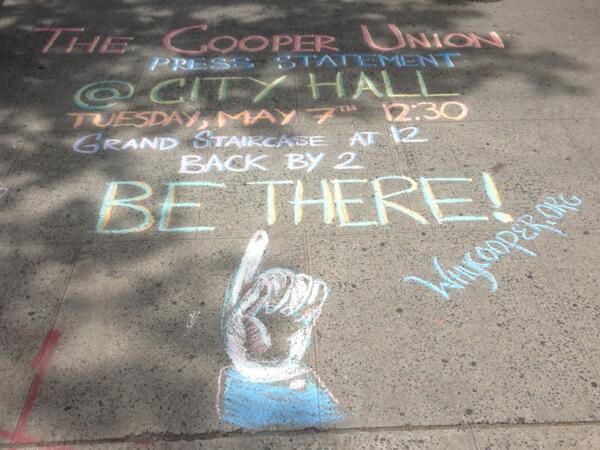 THE COOPER UNION
PRESS STATEMENT
@ CITY HALL
TUESDAY, MAY 7TH 12:30
GRAND STAIRCASE AT 12
BACK BY 2
BE THERE!
WHYCOOPER.ORG